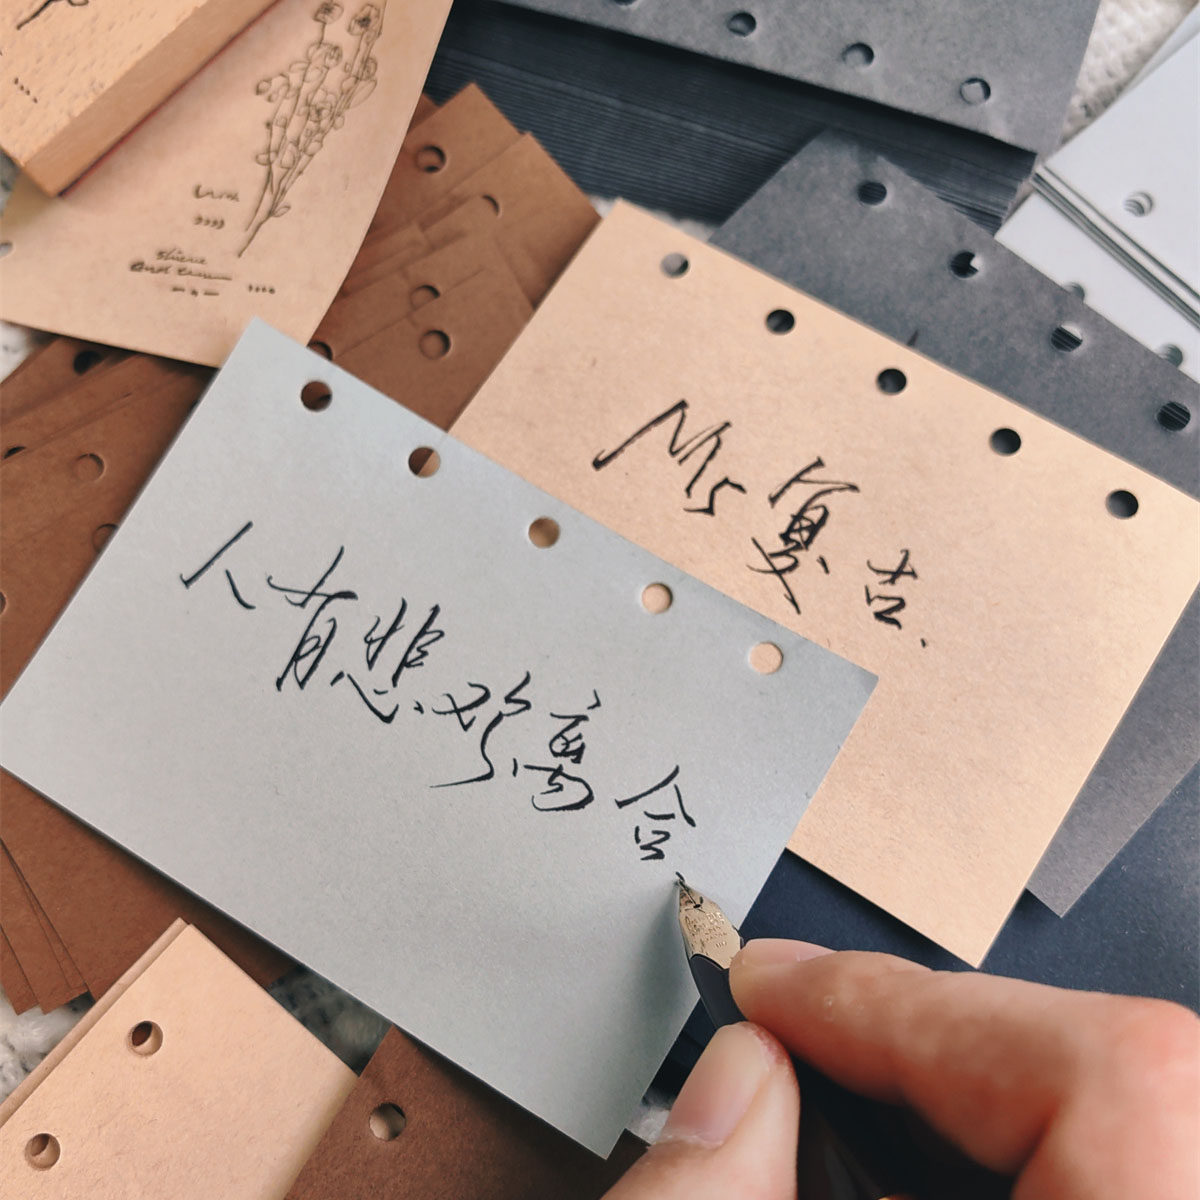 Mrs夏吉.
人有悲欢离合